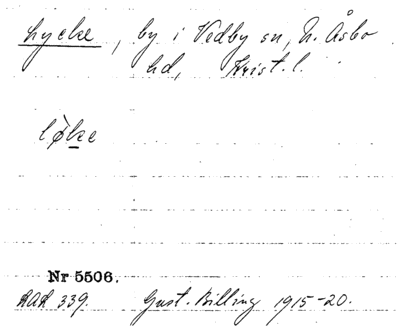 Lycke, by i Vedby sn, N. Åsbo
hd, Krist. l.
lo̊ke
Nr 5506.
Gust. Billing 1915-20.